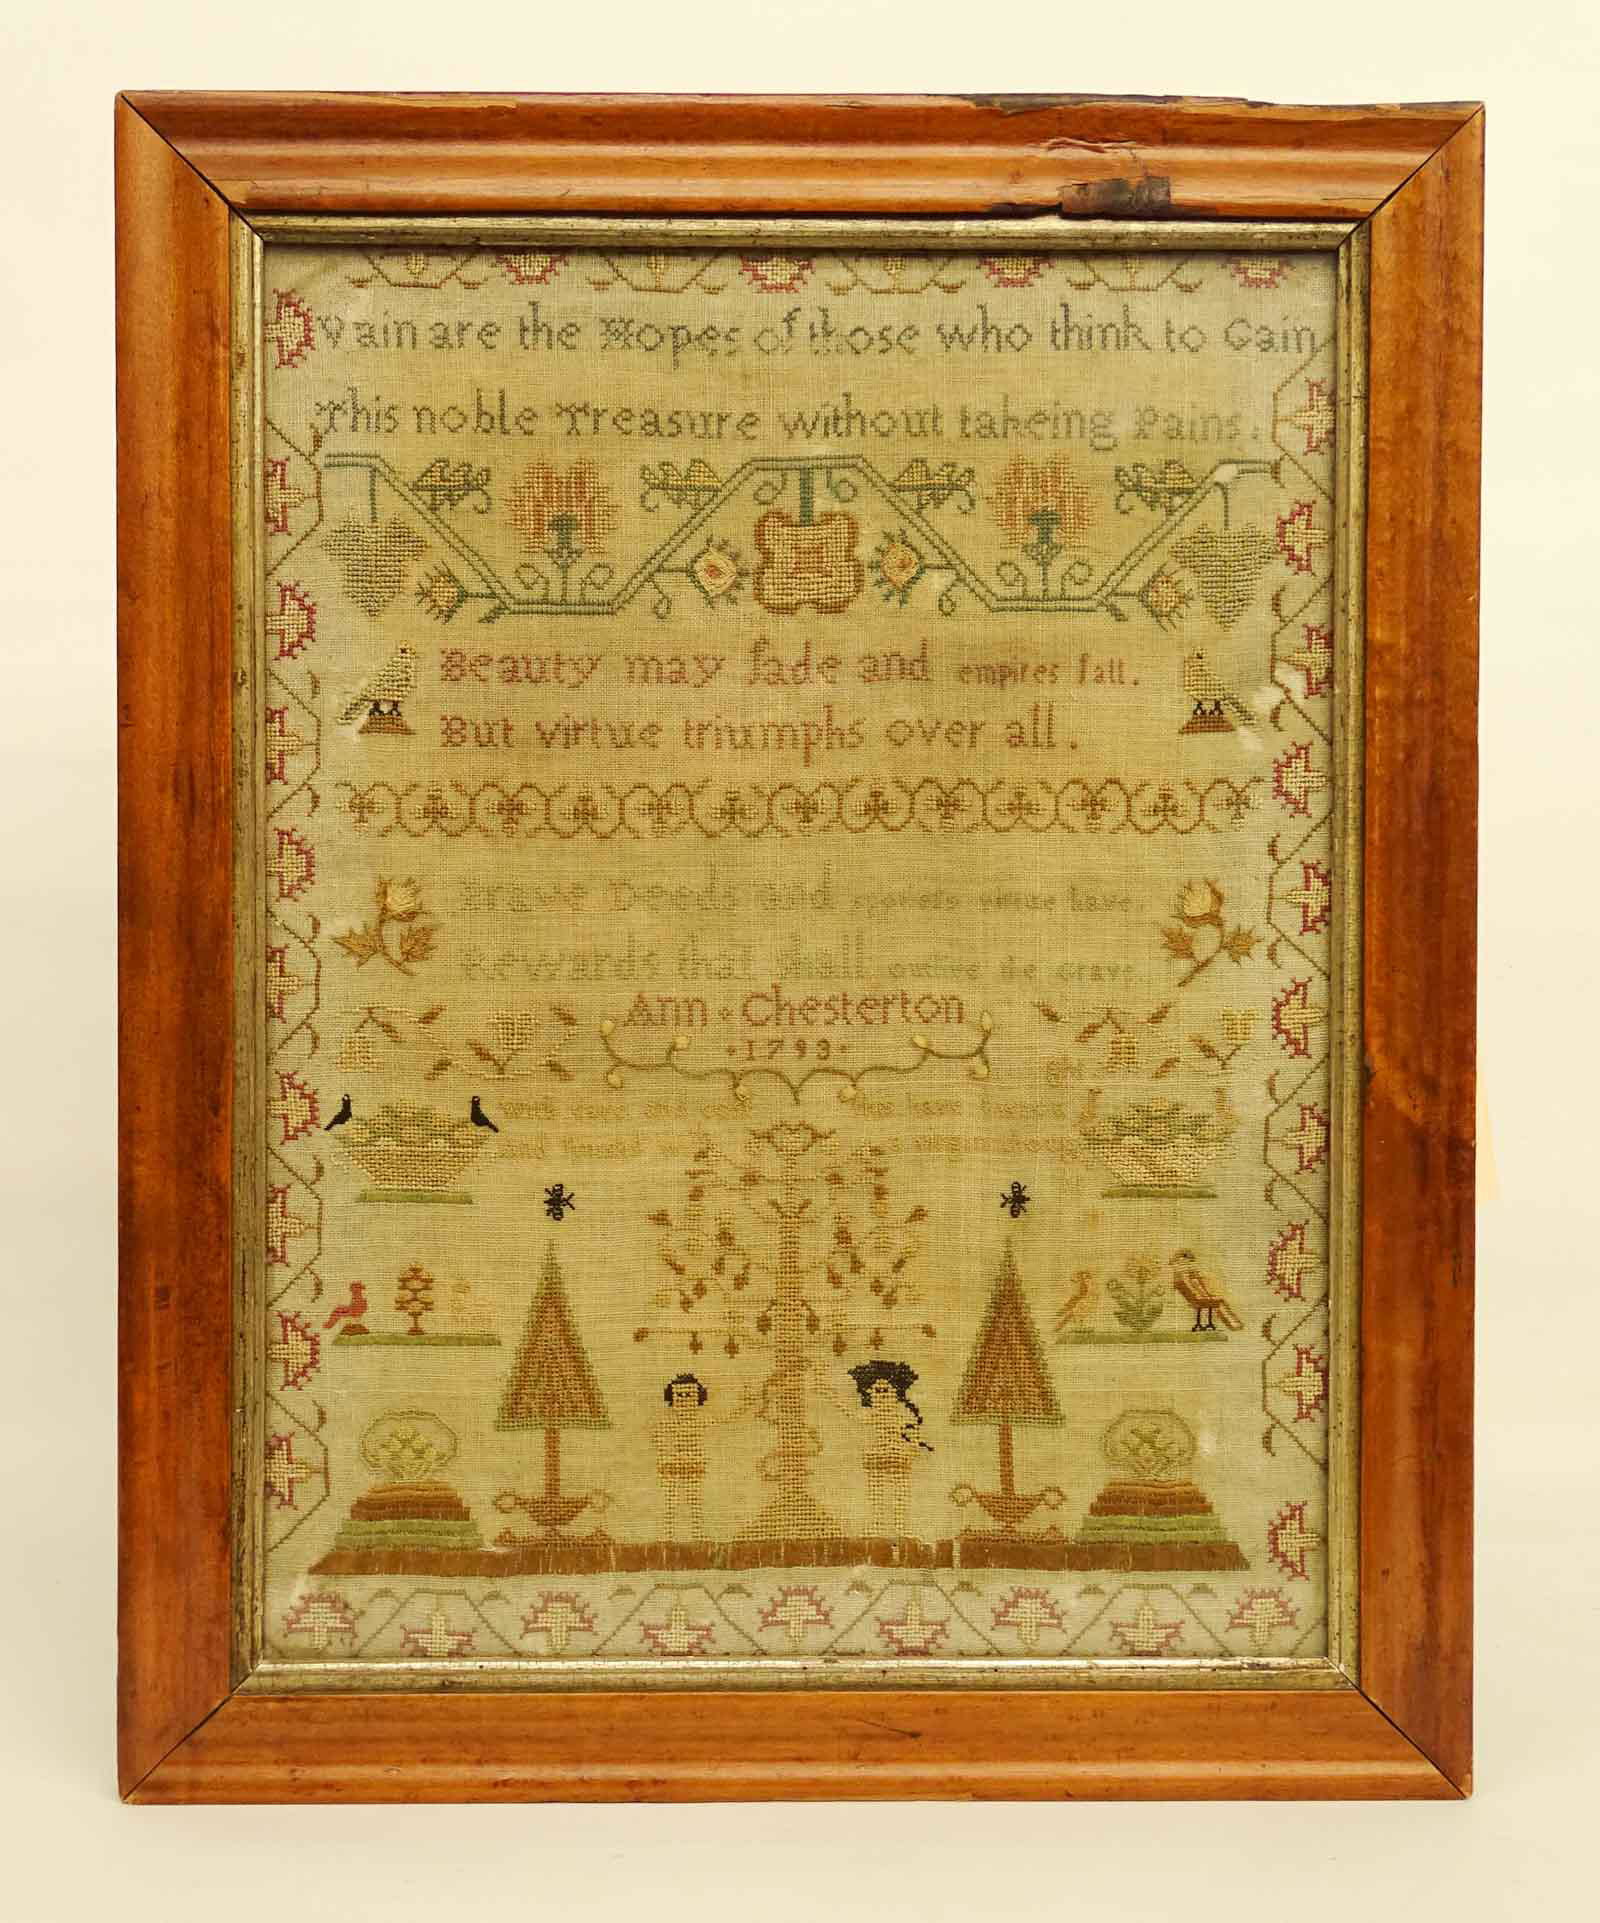 Vain are the Hopes of those who think to Gain
This noble Treasure without takeing Pains.
Beauty may fade and empires fall.
But virtue triumphs over all.
Brave Deeds and virtue have
Rewards that shall outlive the Grave
Ann Chesterton
1793
With care and this have
and